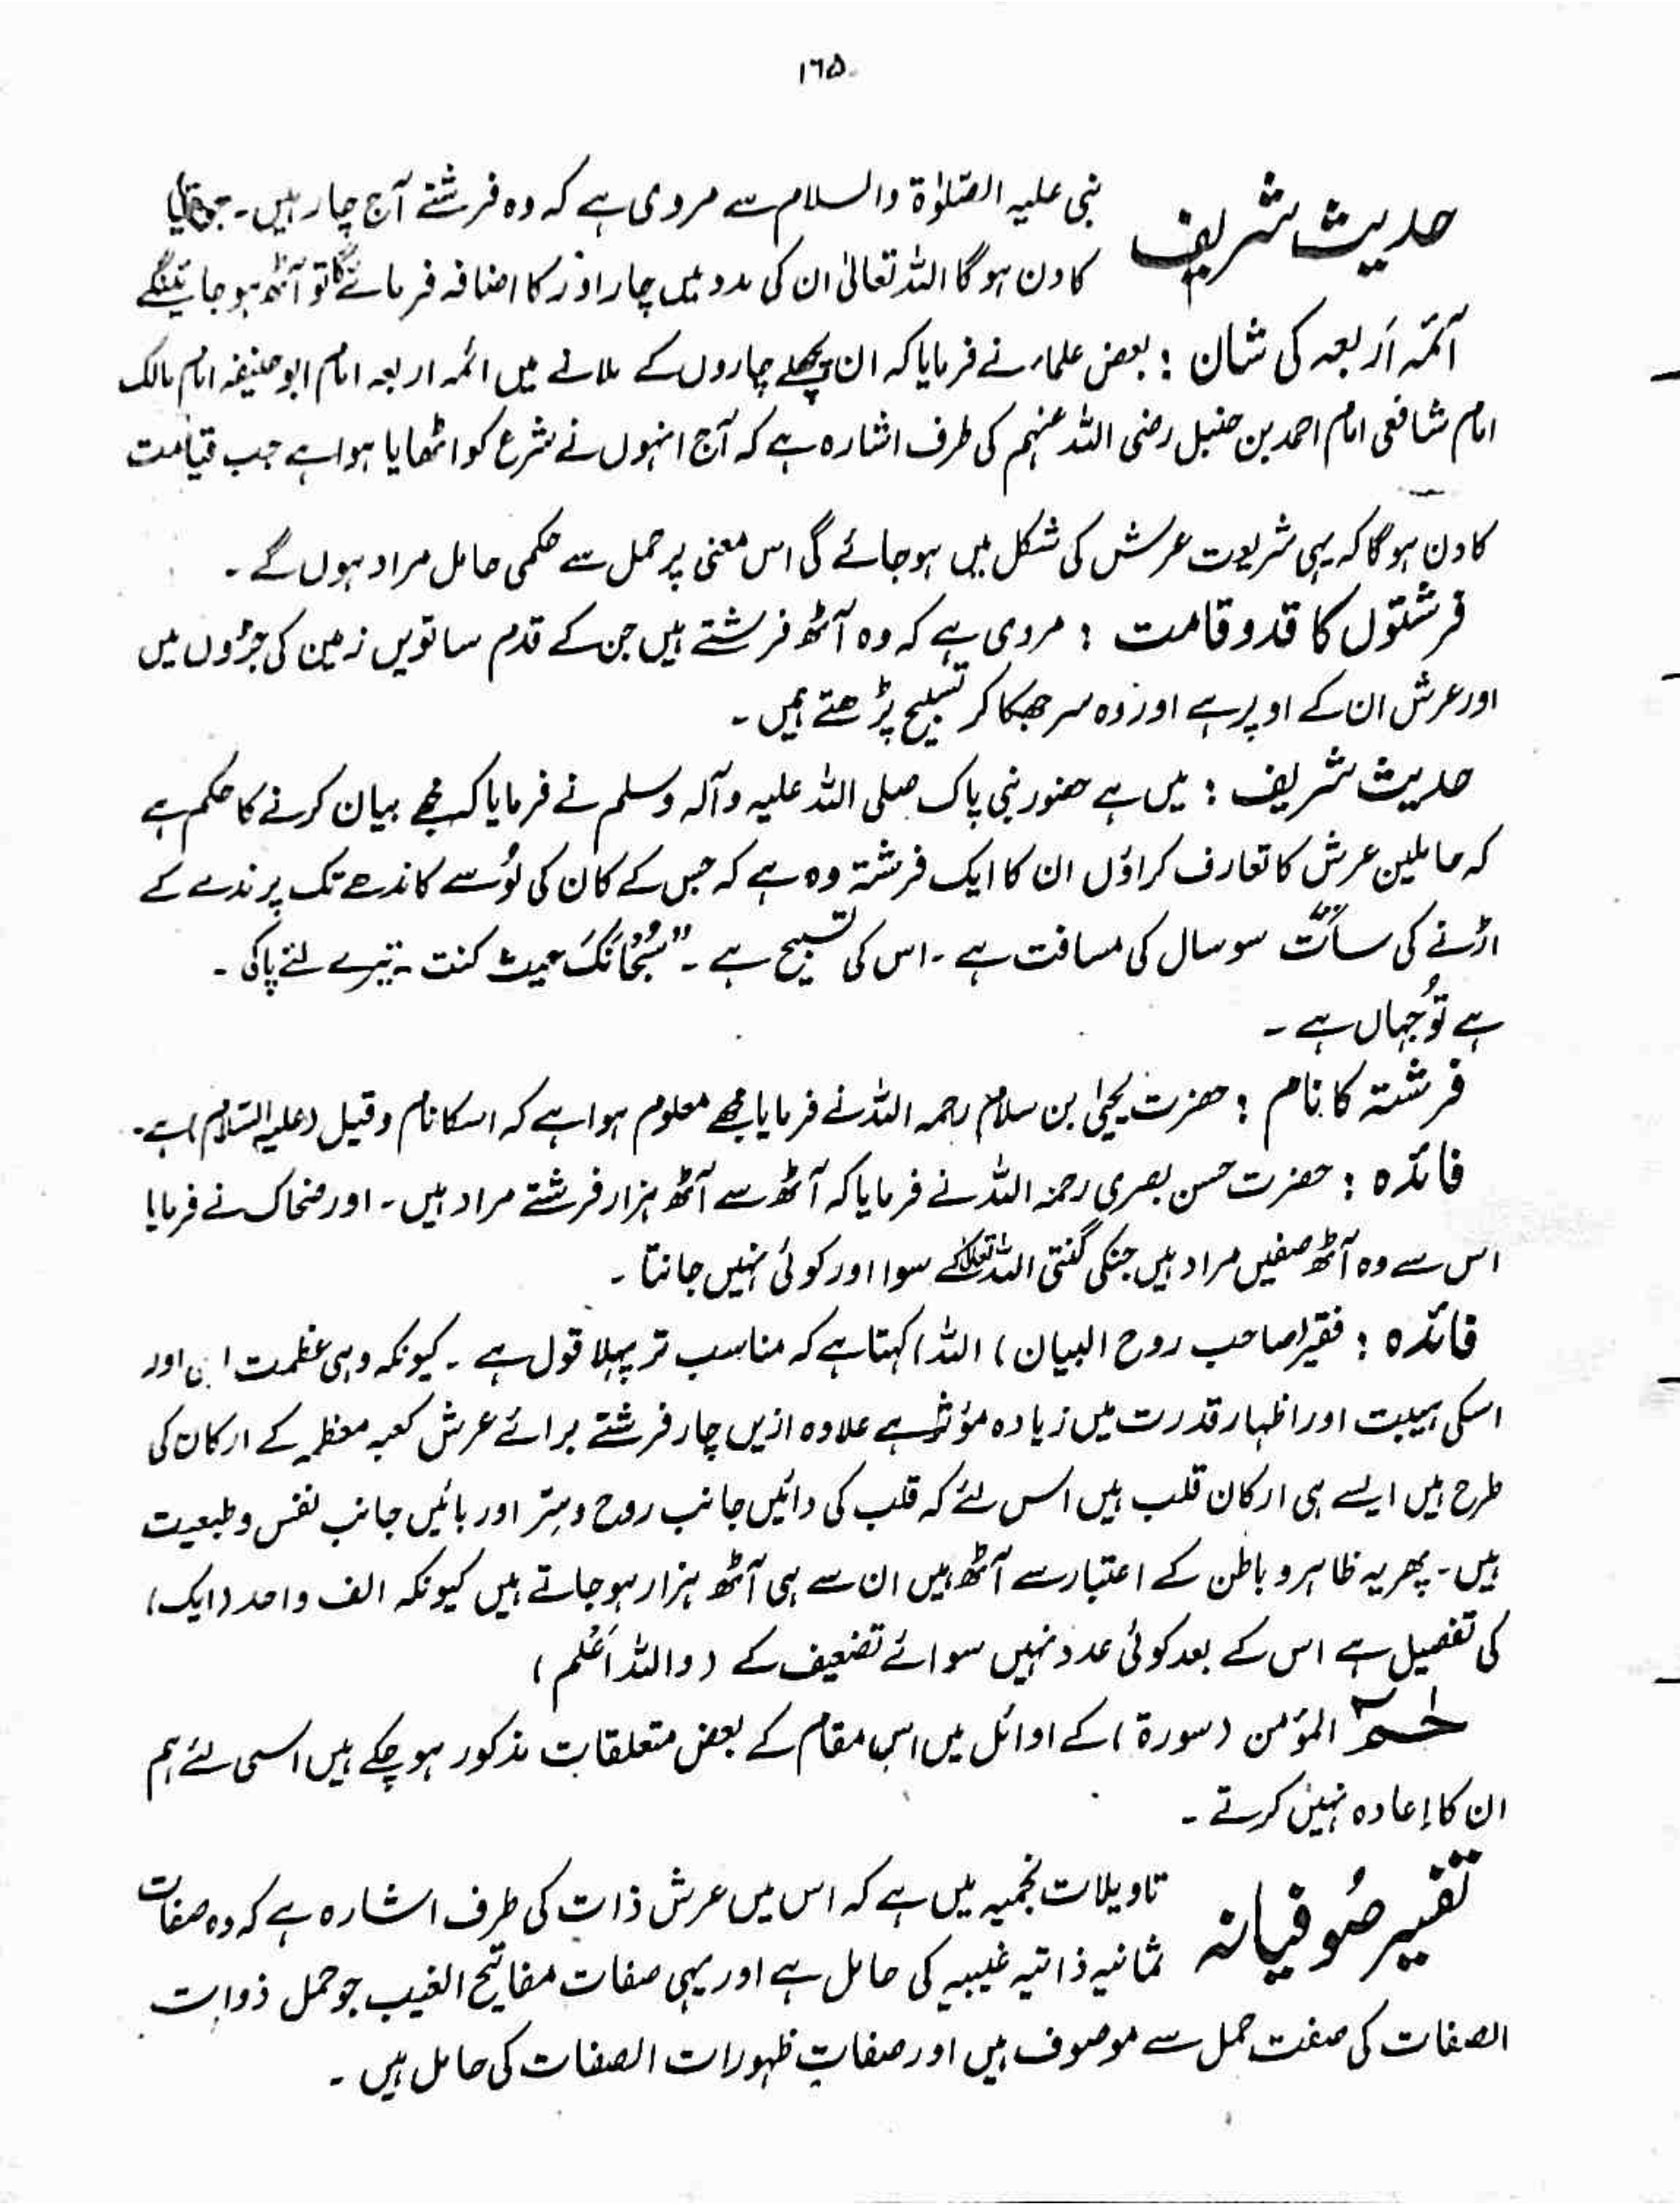 ۱۶۵
حدیث شریف نبی علیہ الصّلوٰۃ والسلام سے مروی ہے کہ وہ فرشتے آج چار ہیں۔ جب
کا دن ہوگا اللہ تعالیٰ ان کی مدد میں چار اور کا اضافہ فرمائے گا تو آٹھ ہو جائینگے
آئمّہ اَربعہ کی شان : بعض علماء نے فرمایا کہ ان پچھلے چاروں کے ملانے میں ائمہ اربعہ امام ابوحنیفہ امام مالک
امام شافعی امام احمد بن حنبل رضی اللہ عنہم کی طرف اشارہ ہے کہ آج انہوں نے شرع کو اٹھایا ہوا ہے جب قیامت
کا دن ہوگا کہ یہی شریعت عرش کی شکل میں ہوجائے گی اس معنی پر حمل سے حکمی حامل مراد ہوں گے۔
فرشتوں کا قدوقامت : مروی ہے کہ وہ آٹھ فرشتے ہیں جن کے قدم ساتویں زمین کی جڑوں میں
اور عرش ان کے اوپر ہے اور وہ سر جھکا کر تسبیح پڑھتے ہیں۔
حدیث شریف : میں ہے حضور نبی پاک صلی اللہ علیہ وآلہ وسلم نے فرمایا کہ مجھے بیان کرنے کا حکم ہے
کہ حاملین عرش کا تعارف کراؤں ان کا ایک فرشتہ وہ ہے کہ جس کے کان کی لَو سے کاندھے تک پرندے کے
اڑنے کی سات سو سال کی مسافت ہے۔ اس کی تسبیح ہے۔ "سُبْحَانَکَ حیث کنت۔ تیرے لئے پاکی۔
ہے تُو جہاں ہے۔
فرشتہ کا نام : حضرت یحییٰ بن سلام رحمہ اللہ نے فرمایا مجھے معلوم ہوا ہے کہ اسکا نام وقیل (علیہ السّلام) ہے۔
فائدہ : حضرت حسن بصری رحمہ اللہ نے فرمایا کہ آٹھ سے آٹھ ہزار فرشتے مراد ہیں۔ اور ضحاک نے فرمایا
اس سے وہ آٹھ صفیں مراد ہیں جنکی گنتی اللہ تعالیٰ کے سوا اور کوئی نہیں جانتا۔
فائدہ : فقیر (صاحب روح البیان) اللہ) کہتا ہے کہ مناسب تر پہلا قول ہے۔ کیونکہ وہی عظمت اور
اسکی ہیبت اور اظہار قدرت میں زیادہ مؤثر ہے علاوہ ازیں چار فرشتے برائے عرش کعبہ معظمہ کے ارکان کی
طرح ہیں ایسے ہی ارکان قلب ہیں اس لئے کہ قلب کی دائیں جانب روح و سِرّ اور بائیں جانب نفس و طبعیت
ہیں۔ پھر یہ ظاہر و باطن کے اعتبار سے آٹھ ہیں ان سے ہی آٹھ ہزار ہوجاتے ہیں کیونکہ الف واحد (ایک)
کی تفصیل ہے اس کے بعد کوئی عدد نہیں سوائے تضعیف کے (واللہ اَعْلم)
حٰـمٓ المؤمن (سورۃ) کے اوائل میں اس مقام کے بعض متعلقات مذکور ہوچکے ہیں اسی لئے ہم
ان کا اِعادہ نہیں کرتے۔
تفسیر صُوفیانہ تاویلات نجمیہ میں ہے کہ اس میں عرش ذات کی طرف اشارہ ہے کہ وہ صفات
ثمانیہ ذاتیہ غیبیہ کی حامل ہے اور یہی صفات مفاتیح الغیب جو حمل ذوات
الصفات کی صفت حمل سے موصوف ہیں اور صفات ظہورات الصفات کی حامل ہیں۔